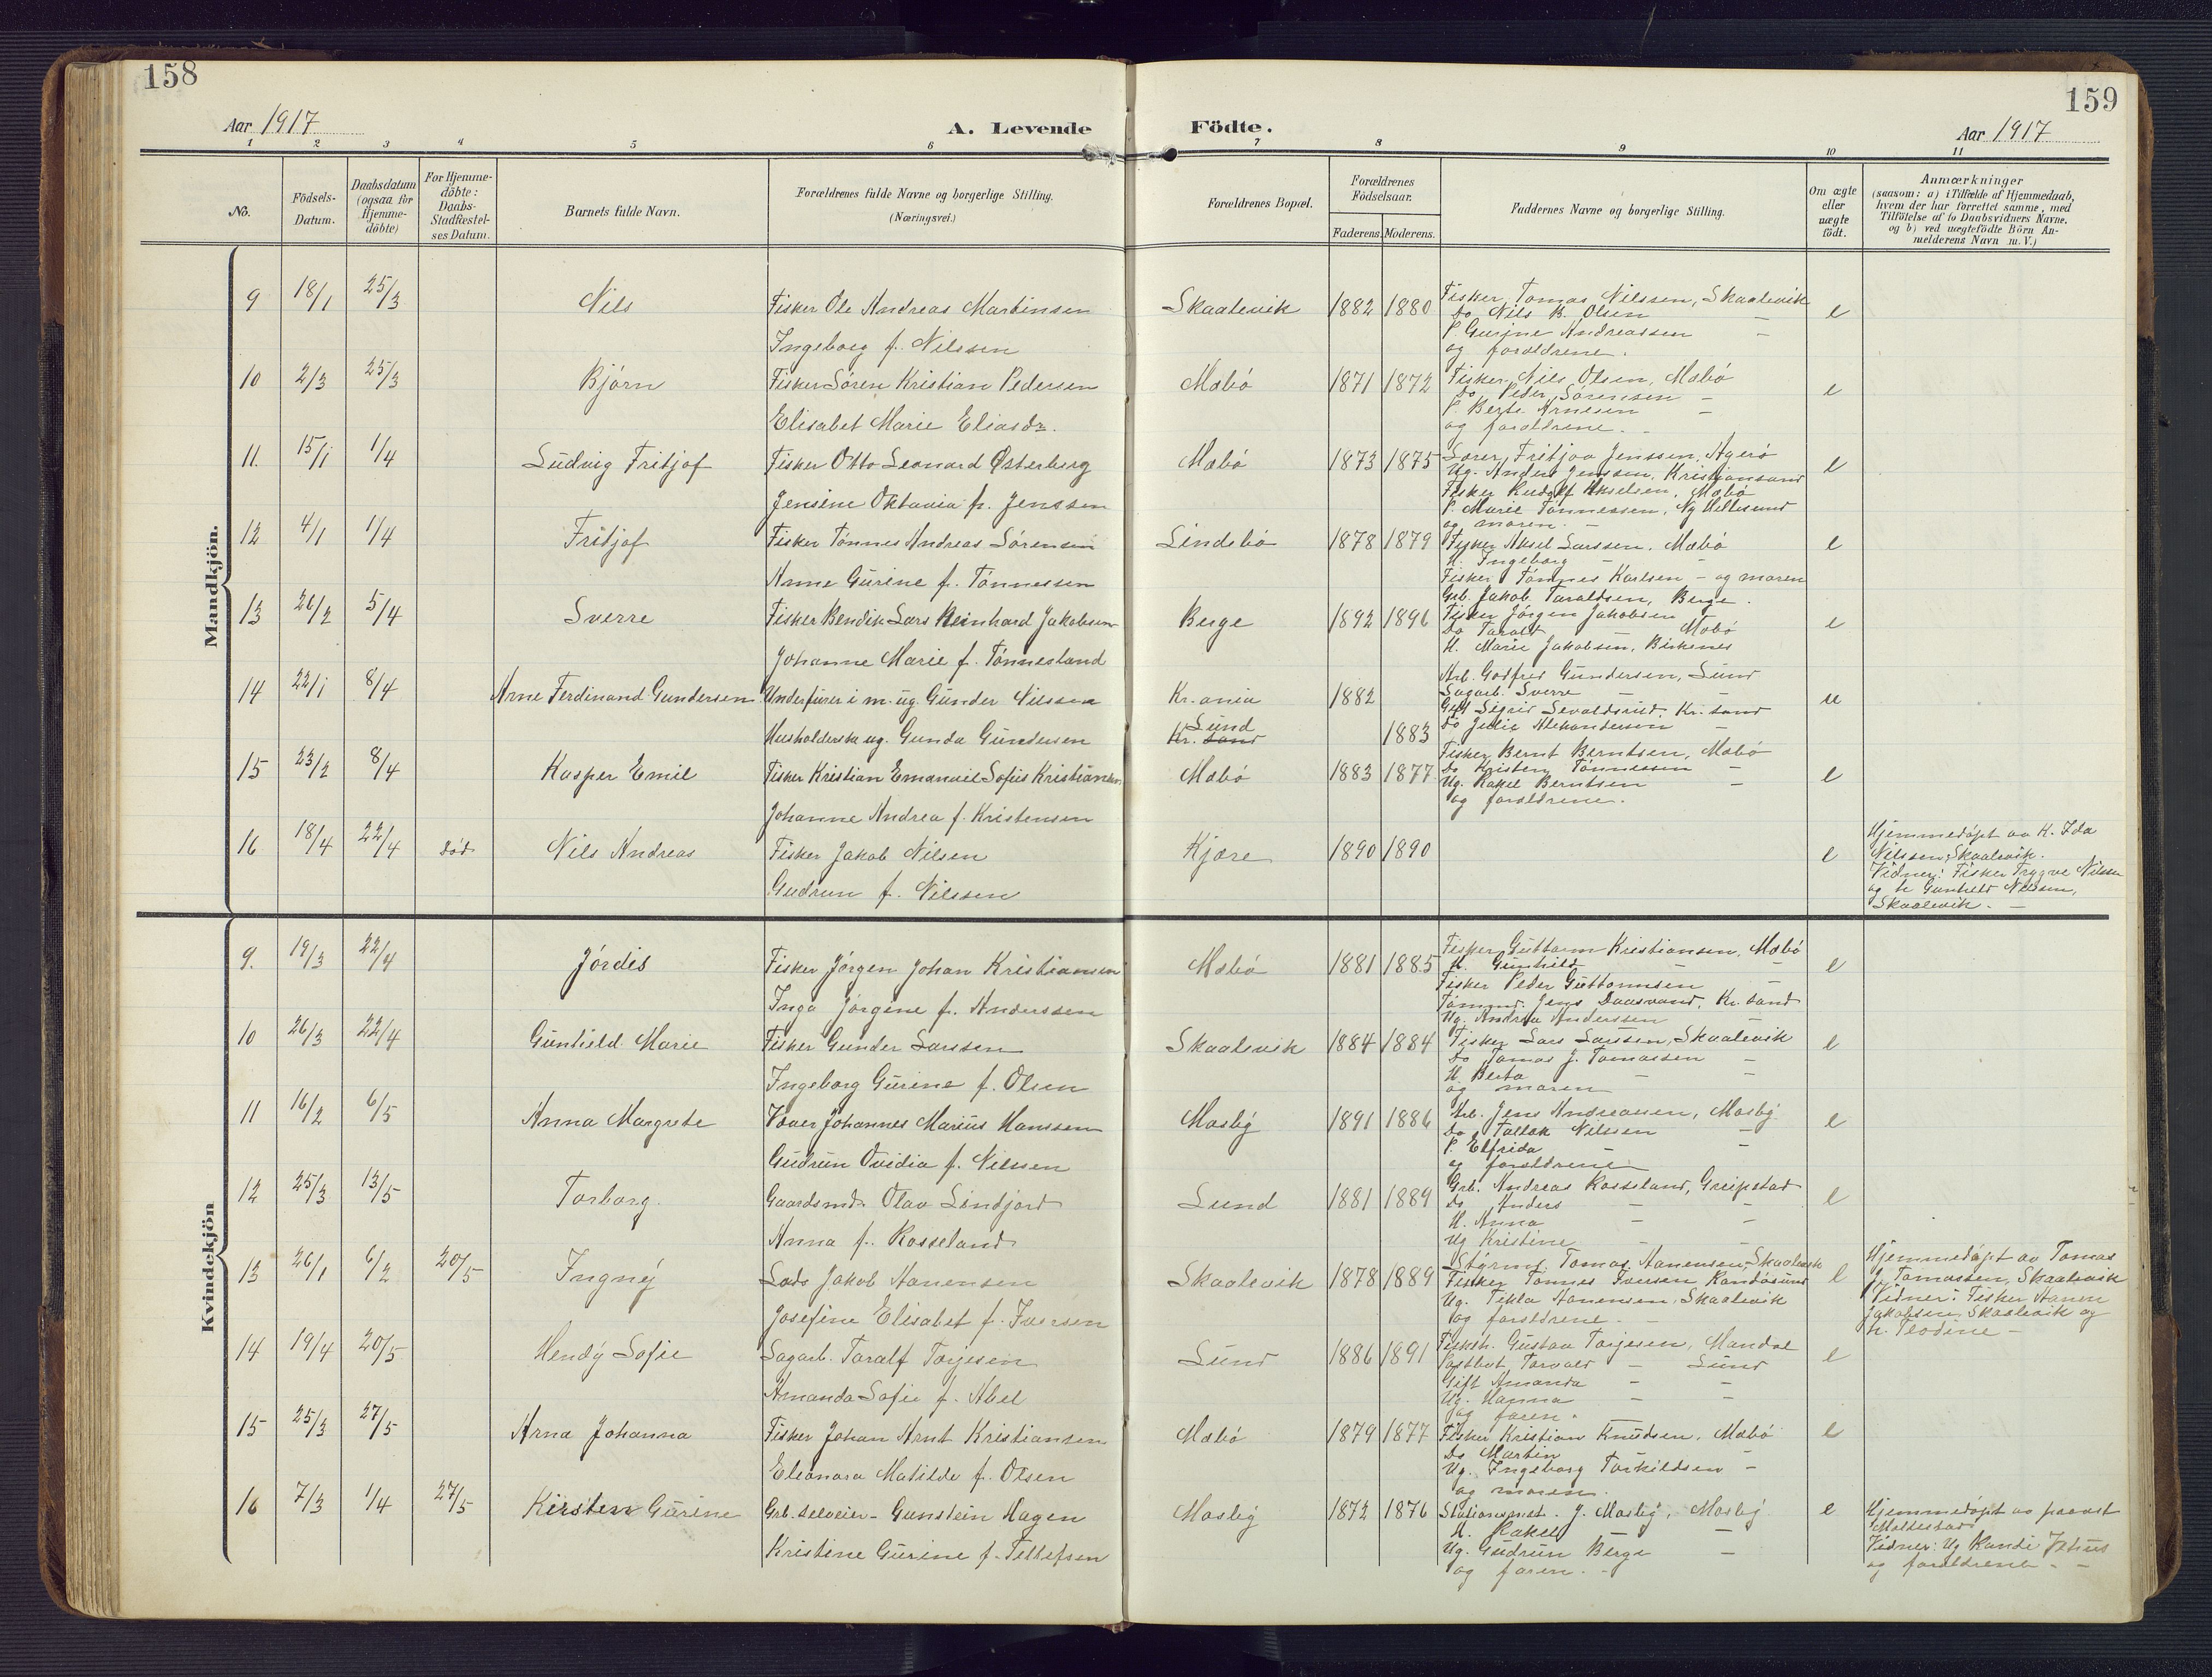 158
159
Aar 1917
A. Levende
Födte.
Aar 1917
1 2 3 4 5 6 7 8 9 10 11
No.
Födsels-
Datum.
Daabsdatum
(ogsaa for
Hjemme-
döbte)
For Hjemme-
döbte:
Daabs-
Stadfæstel-
ses Datum.
Barnets fulde Navn.
Forældrenes fulde Navne og borgerlige Stilling.
(Næringsvei.)
Forældrenes Bopæl.
Forældrenes
Födselsaar.
Faderens. Moderens.
Faddernes Navne og borgerlige Stilling.
Om ægte
eller
uægte
födt.
Anmærkninger
(saasom: a) i Tilfælde af Hjemmedaab,
hvem der har forrettet samme, med
Tilföielse af to Daabsvidners Navne.
og b) ved uægtefödte Börn An-
melderens Navn m. V.)
Mandkjön.
9 18/1 25/3 Nils Fisker Ole Andreas Martinsen Skaalevik 1882 1880 e
Ingeborg f. Nilssen
Fisker Tomas Nilssen, Skaalevik
Do Nils B. Olsen —
P. Gurine Andreassen —
og foreldrene.
10 2/3 25/3 Bjørn Fisker Søren Kristian Pedersen Mæbø 1871 1872 e
Elisabet Marie Eliasdr.
Fisker Nils Olsen, Mæbø
Do Peder Sørensen —
P. Berte Arnesen —
og foreldrene.
11. 15/1 1/4 Ludvig Fritjof Fisker Otto Leonard Østerberg Mæbø 1873 1875 e
Jensine Oktavia f. Jenssen
Fritjov Jenssen, Agerø
Ug. Anders Jenssen, Kristiansand
Fisker Rudolf Akselsen, Mæbø
P. Marie Tønnessen, Ny Hellesund
og moren. —
12 4/1 1/4 Fritjof Fisker Tønnes Andreas Sørensen Lindebø 1878 1879 e
Anne Gurine f. Tønnessen
Fisker Aksel Larssen, Mæbø
H. Ingeborg — —
Fisker Tønnes Karlsen — og moren
13 26/2 5/4 Sverre Fisker Bendik Lars Reinhard Jakobsen Berge 1892 1896 e
Johanne Marie f. Tønnesland
Grb. Jakob Taraldsen, Berge.
Fisker Jørgen Jakobsen —
Do Taralt — Mæbø
H. Marie Jakobsen, Birkenes
14 22/1 8/4 Arne Ferdinand Gundersen Underfurer i m. ug. Gunder Nilssen Kr.ania 1882 u
Husholderske ug. Gunda Gundersen Lund Kr. sand 1883
Arb. Godfred Gundersen, Lund
Sagarb. Sverre — —
Gift Sigrid Sevaldsrud, Kr. sand
Do Julie Aleksandersen —
15 23/2 8/4 Kasper Emil Fisker Kristian Emanuel Sofus Kristiansen Mæbø 1883 1877 e
Johanne Andrea f. Kristensen
Fisker Bernt Berntsen, Mæbø
Do Kristen Tønnessen —
Ug. Rakel Berntsen —
og foreldrene.
16 18/4 22/4 død Nils Andreas Fisker Jakob Nilsen Kjære 1890 1890 e
Gudrun f. Nilssen
Hjemmedøpt av H. Ida
Nilssen, Skaalevik.
Vidner: Fisker Trygve Nilssen
og h. Gunhild Nilssen,
Skaalevik. —
Kvindekjön
9. 19/3 22/4 Jørdis Fisker Jørgen Johan Kristiansen Mæbø 1881 1885 e
Inga Jørgine f. Anderssen
Fisker Guttorm Kristiansen, Mæbø
H. Gunhild — —
Fisker Peder Guttormsen —
Tømmm. Jens Daasvand, Kr. sand
Ug. Andrea Anderssen —
10 26/3 22/4 Gunhild Marie Fisker Gunder Larssen Skaalevik 1884 1884 e
Ingeborg Gurine f. Olsen
Fisker Lars Larssen, Skaalevik
Do Tomas J. Tomassen —
H. Berta — —
og moren
11 16/2 6/5 Anna Margrete Johannes Marius Hanssen Mosby 1891 1886 e
Gudrun Ovidia f. Nilssen
Arb. Jens Andreassen, Mosby
Do Tallak Nilssen —
P. Elfrida — —
og foreldrene
12 25/3 13/5 Torborg. Gaardsmd. Olav Lindjord Lund 1881 1889 e
Anna f. Rosseland
Grb. Andreas Rosseland, Greipstad
Do Anders — —
H. Anna — —
Ug Kristine — —
13 26/1 6/2 20/5 Ingny Lods Jakob Aanensen Skaalevik 1878 1889 e
Josefine Elisabet f. Iversen
Styrm. Tomas Aanensen, Skaalevik
Fisker Tønnes Iversen Randøsund
Ug. Tekla Aanensen, Skaalevik
og foreldrene. —
Hjemmedøpt av Tomas
J. Tomassen, Skaalevik
Vidner: Fisker Aanen
Jakobsen, Skaalevik og
h. Teodine —
14 19/4 20/5 Hendy Sofie Sagarb. Toralf Torjesen Lund 1886 1891 e
Amanda Sofie f. Abel
Fiskeh. Gustav Torjesen, Mandal
Postbut Torvald — Lund
Gift Amanda — —
Ug. Hanna — —
og faren.
15 25/3 27/5 Arna Johanna Fisker Johan Arnt Kristiansen Mæbø 1879 1877 e
Eleonora Matilde f. Olsen
Fisker Kristian Knudsen, Mæbø
Do Martin — —
Ug. Ingeborg Torkildsen —
og moren.
16 7/3 1/4 27/5 Kirsten Gurine Grb. selveier - Gunstein Hagen Mosby 1872 1876 e
Kristine Gurine f. Tellefsen
Stationsmst. J. Mosby, Mosby
H. Rakel — —
Ug. Gudrun Berge —
og faren. —
Hjemmedøpt av provst
Vidner: Ug Randi
og foreldrene — —